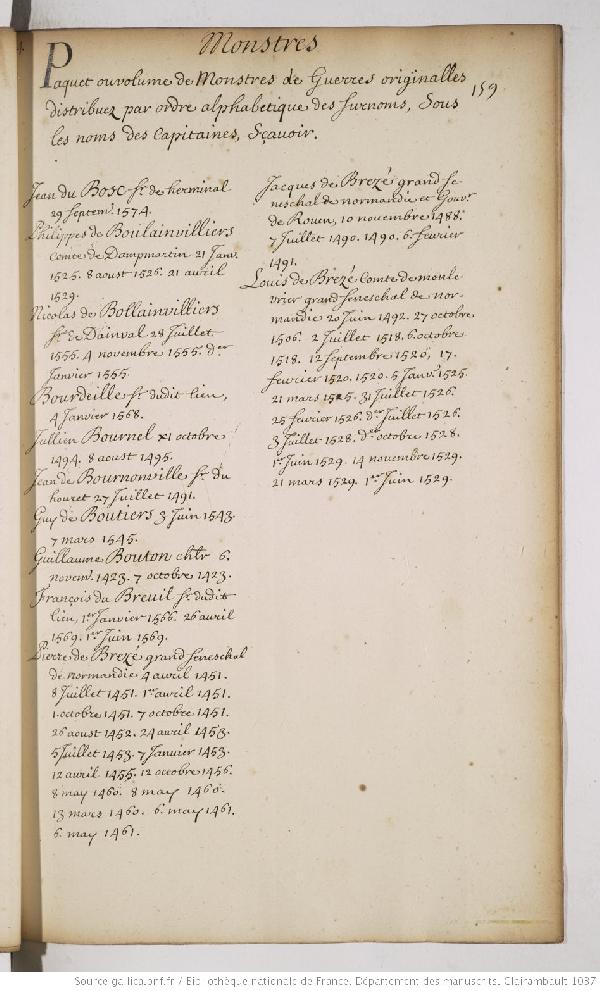 Monstres
159
Paquet ou volume de Monstres de Guerres originalles
distribuez par ordre alphabetique des surnoms, Sous
les noms des Capitaines, Sçavoir.
Jean du Bosc sr. de herminal
29 septemb. 1574.
Philippes de Boulainvilliers
comte de Dampmartin 21 Janv.
1525. 8 aoust 1526. 21 avril
1529.
Nicolas de Bollainvilliers
sr. de Dainval 28 Juillet
1555. 4 novembre 1555. der
Janvier 1555.
Bourdeille sr. dudit lieu,
4 Janvier 1568.
Jullien Bournel xi octobre
1494. 8 aoust 1495.
Jean de Bournonville sr. du
houret 27 Juillet 1491.
Guy de Boutiers 3 Juin 1543.
7 mars 1545.
Guillaume Bouton chlr 6.
novem. 1423. 7 octobre 1423.
François du Breuil sr. dudit
lieu, 1er Janvier 1566. 26 avril
1569. 1er Juin 1569.
Pierre de Brezé grand seneschal
de normandie 4 avril 1451.
8 Juillet 1451. 1er avril 1451.
1 octobre 1451. 7 octobre 1451.
26 aoust 1452. 24 avril 1453.
5 Juillet 1453. 7 Janvier 1453.
12 avril 1455. 12 octobre 1456.
8 may 1460. 8 may 1460.
13 mars 1460. 6. may 1461.
6. may 1461.
Jacques de Brezé grand se-
neschal de normandie et Gouvr.
de Rouen, 10 novembre 1488.
7 Juillet 1490. 1490. 6. fevrier
1491.
Louis de Brezé Comte de moule
vrier grand seneschal de nor-
mandie 20 Juin 1492. 27 octobre
1506. 2 Juillet 1518. 6. octobre
1518. 12 septembre 1520, 17.
fevrier 1520. 1520. 5 Janv. 1525.
21 mars 1525. 31 Juillet 1526.
25 fevrier 1526. der Juillet 1526.
3 Juillet 1528. der octobre 1528.
1er Juin 1529. 14 novembre 1529.
21 mars 1529. 1er Juin 1529.
Source gallica.bnf.fr / Bibliothèque nationale de France. Département des manuscrits. Clairambault 1087